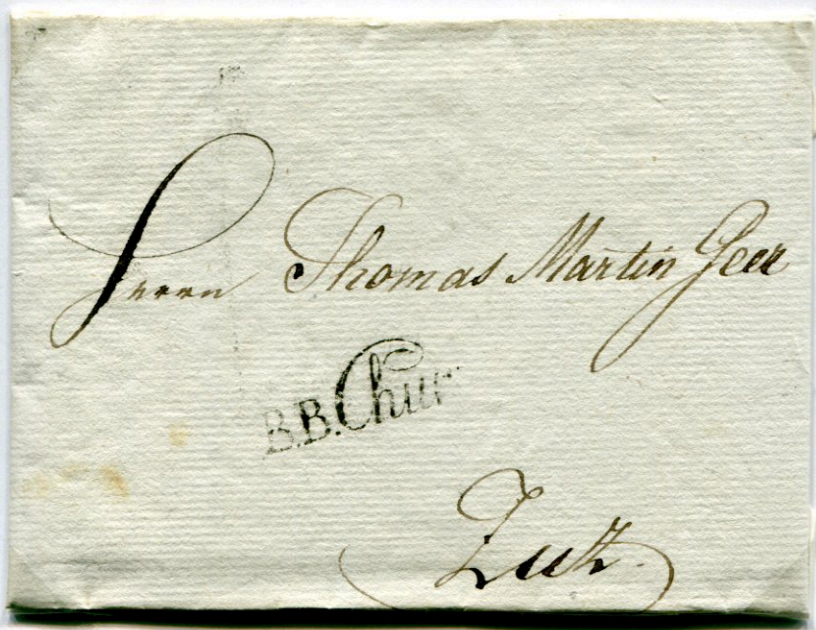 Herrn Thomas Martin Geer
B.B. Chur
Zutz.